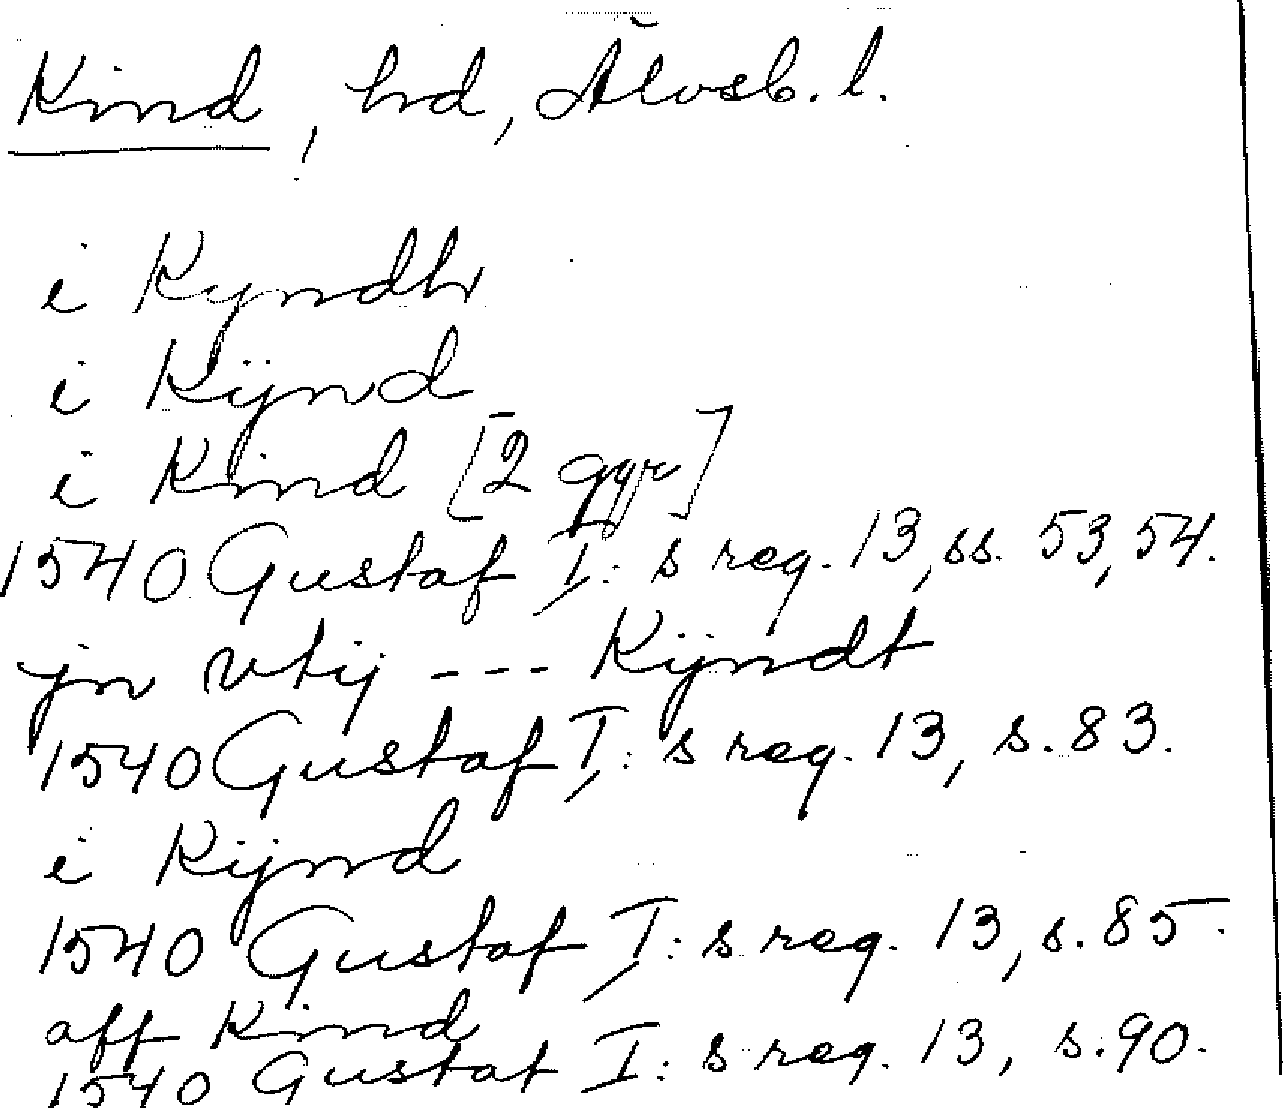 Kind, hd, Älvsb. l.
i Kyndh
i Kijnd
i Kind [2 ggr]
1540 Gustaf I: s reg. 13, ss. 53, 54.
jn vtij --- Kijndt
1540 Gustaf I: s reg. 13, s. 83.
i Kijnd
1540 Gustaf I: s reg. 13, s. 85.
aff Kind
1540 Gustaf I: s reg. 13, s. 90.